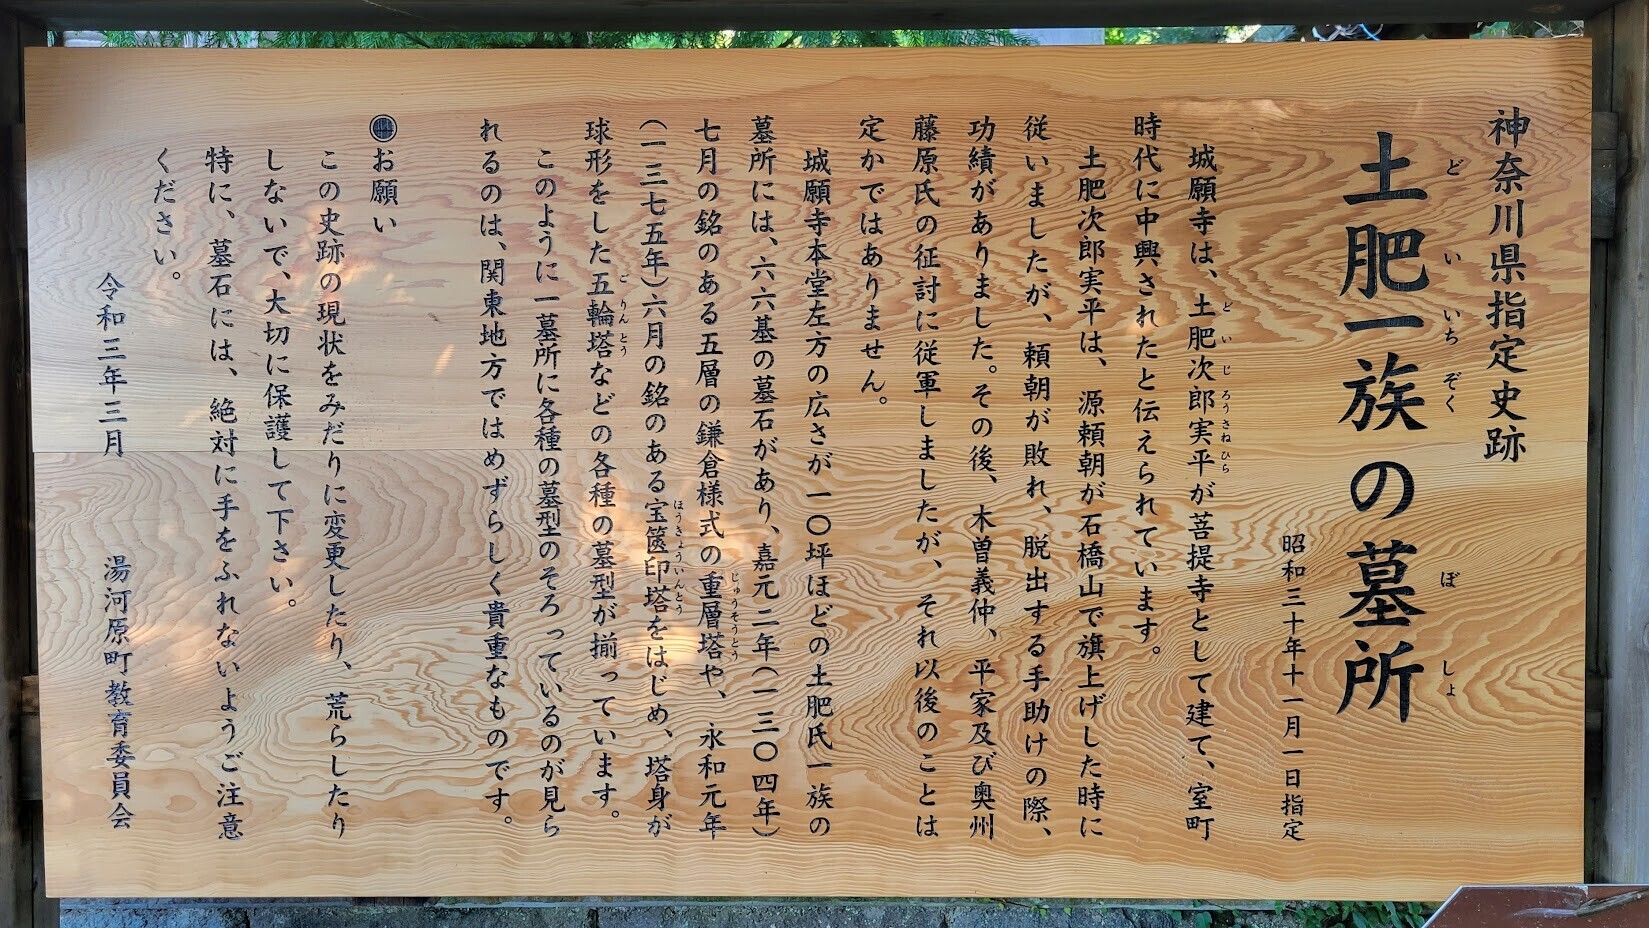 神奈川県指定史跡
土肥一族の墓所
どいいちぞく ぼしょ
昭和三十年十一月一日指定
城願寺は、土肥次郎実平が菩提寺として建て、室町
どいじろうさねひら
時代に中興されたと伝えられています。
土肥次郎実平は、源頼朝が石橋山で旗上げした時に
従いましたが、頼朝が敗れ、脱出する手助けの際、
功績がありました。その後、木曽義仲、平家及び奥州
藤原氏の征討に従軍しましたが、それ以後のことは
定かではありません。
城願寺本堂左方の広さが一〇坪ほどの土肥氏一族の
墓所には、六六基の墓石があり、嘉元二年(一三〇四年)
七月の銘のある五層の鎌倉様式の重層塔や、永和元年
じゅうそうとう
(一三七五年)六月の銘のある宝篋印塔をはじめ、塔身が
ほうきょういんとう
球形をした五輪塔などの各種の墓型が揃っています。
ごりんとう
このように一墓所に各種の墓型のそろっているのが見ら
れるのは、関東地方ではめずらしく貴重なものです。
お願い
この史跡の現状をみだりに変更したり、荒らしたり
しないで、大切に保護して下さい。
特に、墓石には、絶対に手をふれないようご注意
ください。
令和三年三月
湯河原町教育委員会